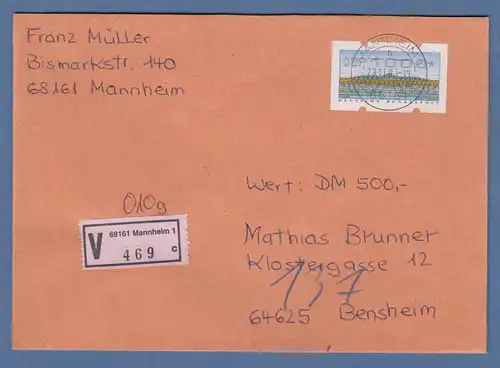 Franz Müller
Bismarkstr. 140
68161 Mannheim
DEUTSCHE BUNDESPOST
010g
Wert: DM 500,-
V 68161 Mannheim 1
469 c
Mathias Brunner
Klostergasse 12
137
64625 Bensheim